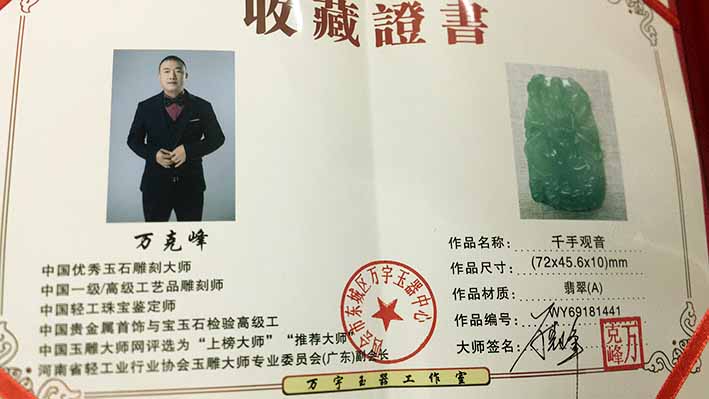 收藏證書
万克峰
中国优秀玉石雕刻大师
中国一级/高级工艺品雕刻师
中国轻工珠宝鉴定师
中国贵金属首饰与宝玉石检验高级工
中国玉雕大师网评选为“上榜大师”“推荐大师”
河南省轻工业行业协会玉雕大师专业委员会(广东)副会长
作品名称: 千手观音
作品尺寸: (72x45.6x10)mm
作品材质: 翡翠(A)
作品编号: WY69181441
大师签名: 万克峰
万克峰
会市东城区万宇玉器中心
万宇玉器工作室